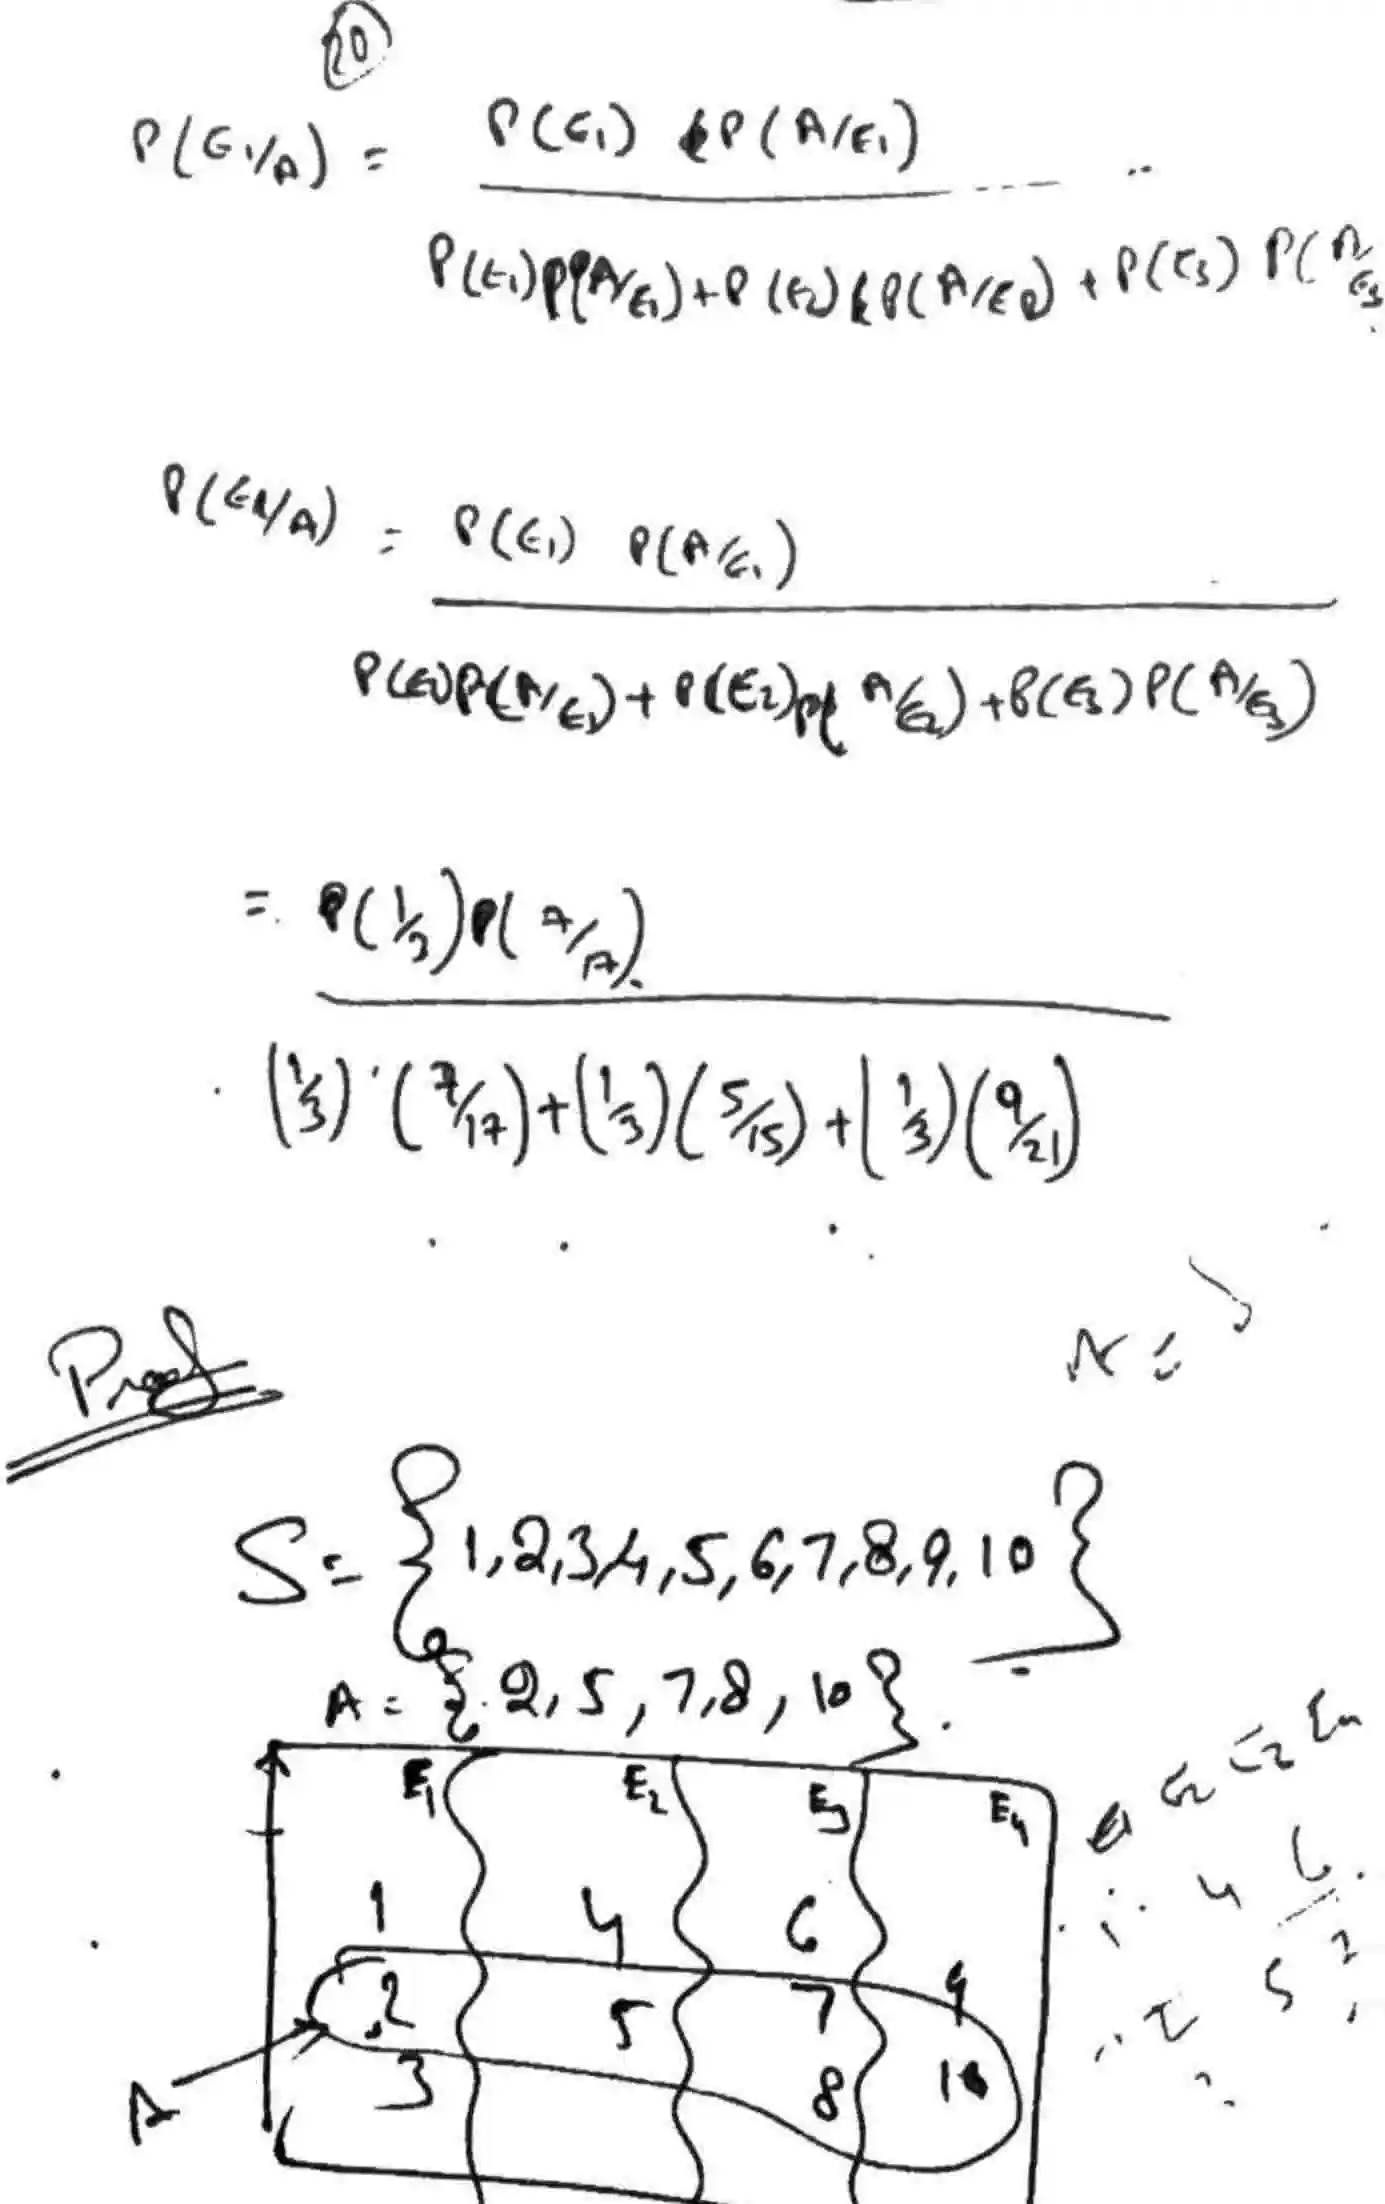 20
P(E1/A) = P(E1) P(A/E1)
P(E1)P(A/E1)+P(E2)P(A/E2) + P(E3) P(A/E3
P(E1/A) = P(E1) P(A/E1)
P(E1)P(A/E1)+ P(E2)P( A/E2) +P(E3) P(A/E3)
= P(1/3)P( 7/17)
(1/3) · (7/17)+(1/3)(5/15)+(1/3)(9/21)
Proof
S= {1,2,3,4,5,6,7,8,9,10}
A = {2,5,7,8,10}
E1 E2 E3 E4
1 4 6
2 5 7 9
3 8 10
A